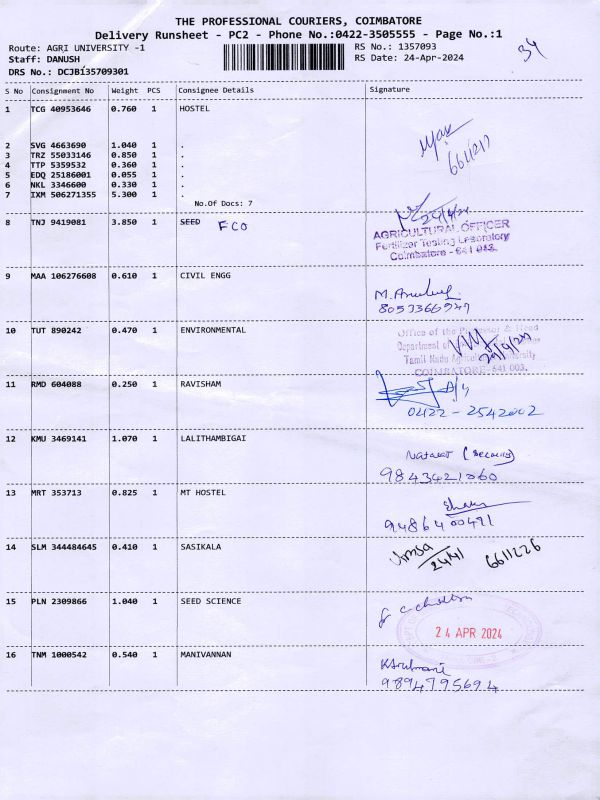 THE PROFESSIONAL COURIERS, COIMBATORE
Delivery Runsheet - PC2 - Phone No.:0422-3505555 - Page No.:1
Route: AGRI UNIVERSITY -1 RS No.: 1357093
Staff: DANUSH RS Date: 24-Apr-2024 34
DRS No.: DCJBI35709301
S No Consignment No Weight PCS Consignee Details Signature
1 TCG 40953646 0.760 1 HOSTEL
2 SVG 4663690 1.040 1 .
3 TRZ 55033146 0.850 1 .
4 TTP 5359532 0.360 1 .
5 EDQ 25186001 0.055 1 .
6 NKL 3346600 0.330 1 .
7 IXM 506271355 5.300 1 .
No.Of Docs: 7
24/4/24
8 TNJ 9419081 3.850 1 SEED FCO
AGRICULTURAL OFFICER
Fertilizer Testing Laboratory
Coimbatore - 641 013.
9 MAA 106276608 0.610 1 CIVIL ENGG
10 TUT 890242 0.470 1 ENVIRONMENTAL
Office of the Professor & Head
Department of
Tamil Nadu Agricultural University
COIMBATORE-641 003.
11 RMD 604088 0.250 1 RAVISHAM
0422-2542002
12 KMU 3469141 1.070 1 LALITHAMBIGAI
9843421060
13 MRT 353713 0.825 1 MT HOSTEL
9486400491
14 SLM 344484645 0.410 1 SASIKALA
24/4 6611226
15 PLN 2309866 1.040 1 SEED SCIENCE
24 APR 2024
16 TNM 1000542 0.540 1 MANIVANNAN
9894795694